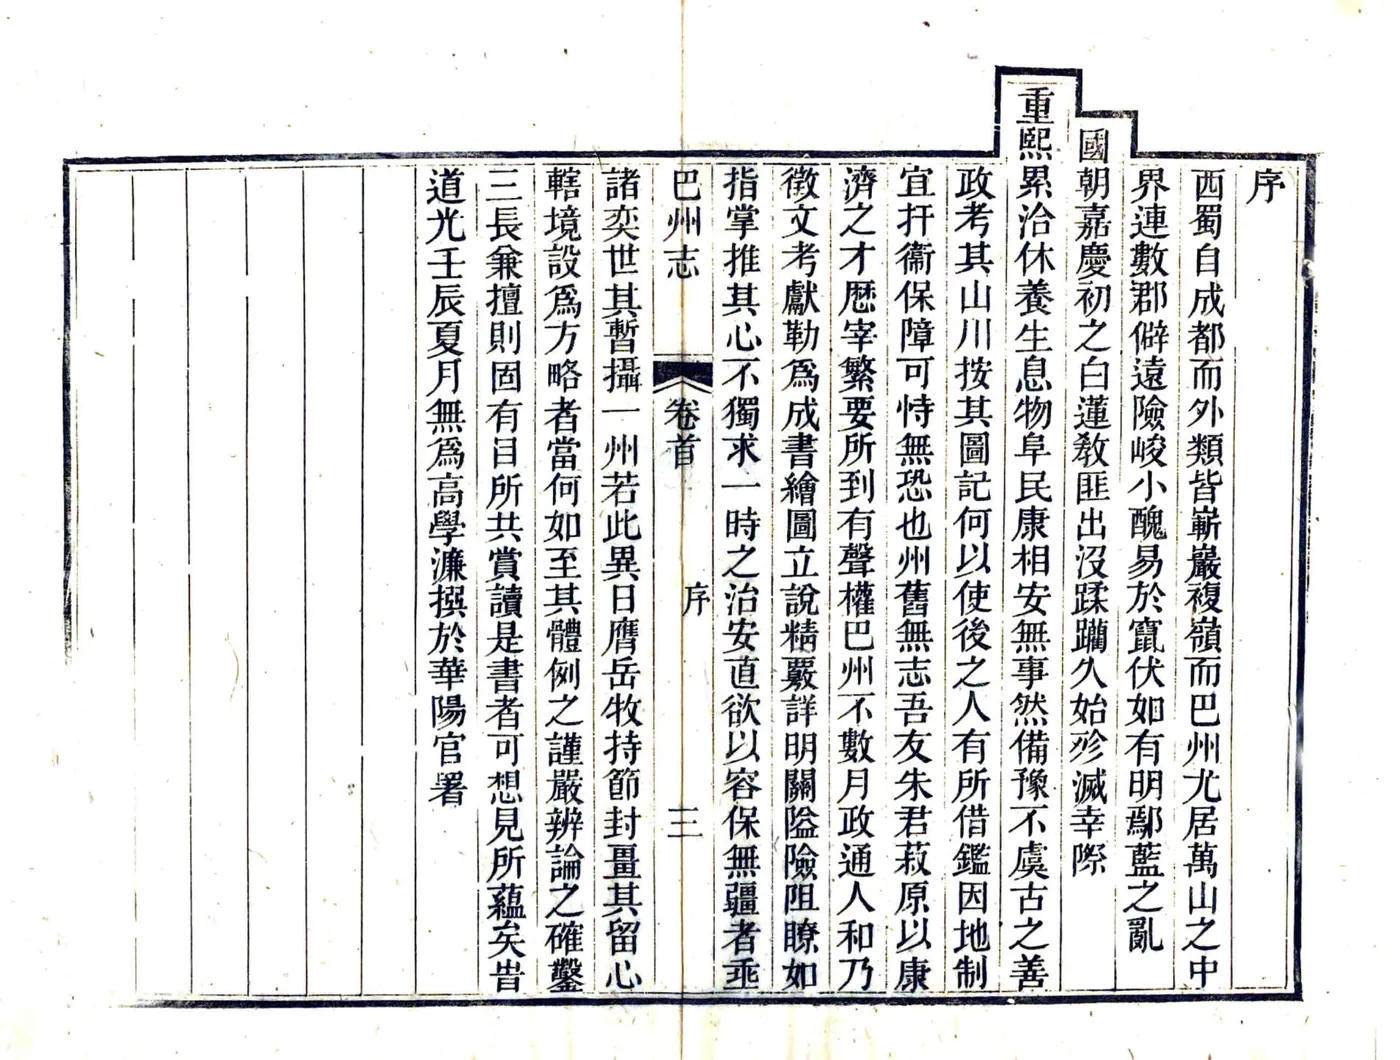 序
西蜀自成都而外類皆嶄巖複嶺而巴州尤居萬山之中
界連數郡僻遠險峻小醜易於竄伏如有明鄢藍之亂
國朝嘉慶初之白蓮教匪出沒蹂躪久始殄滅幸際
重熙累洽休養生息物阜民康相安無事然備豫不虞古之善
政考其山川按其圖記何以使後之人有所借鑑因地制
宜扞衞保障可恃無恐也州舊無志吾友朱君菽原以康
濟之才歷宰繁要所到有聲權巴州不數月政通人和乃
徵文考獻勒爲成書繪圖立說精覈詳明關隘險阻瞭如
指掌推其心不獨求一時之治安直欲以容保無疆者垂
巴州志 卷首 序 三
諸奕世其暫攝一州若此異日膺岳牧持節封畺其留心
轄境設爲方略者當何如至其體例之謹嚴辨論之確鑿
三長兼擅則固有目所共賞讀是書者可想見所蘊矣旹
道光壬辰夏月無爲高學濂撰於華陽官署